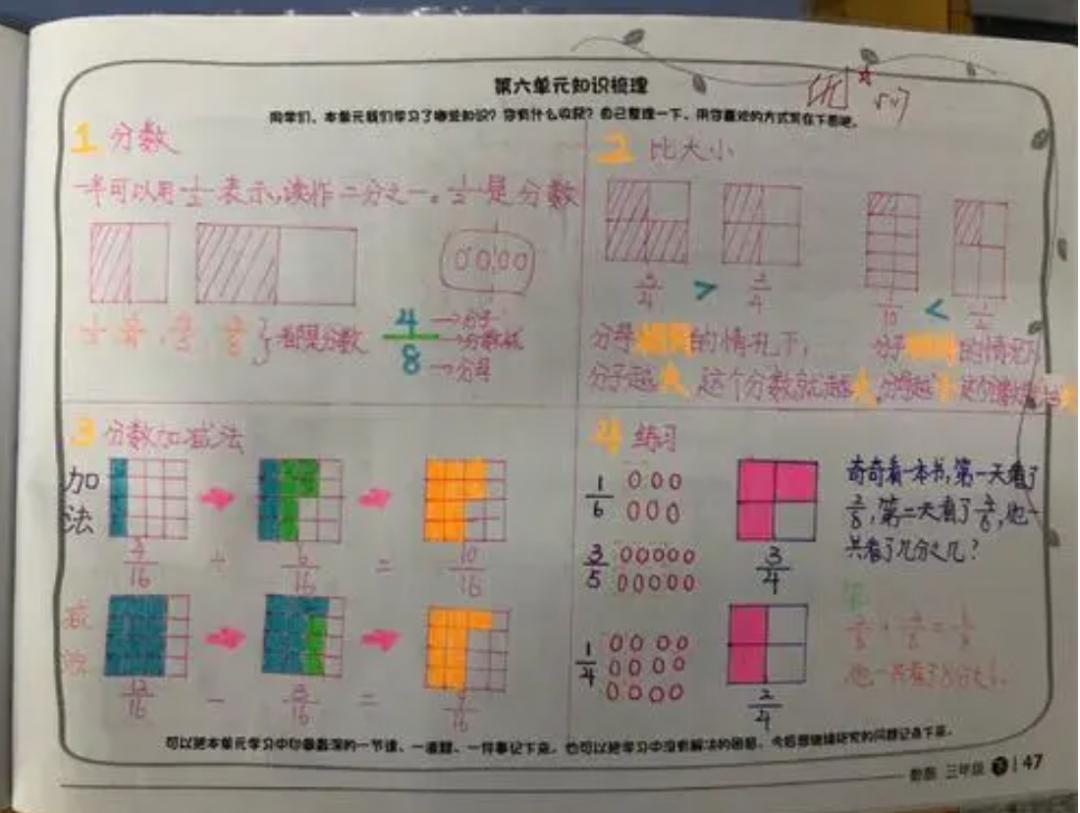 第六单元知识梳理
优
同学们,本单元我们学习了哪些知识?你有什么收获?自己整理一下,用你喜欢的方式写在下面吧。
1 分数
一半可以用1/2表示,读作二分之一。1/2是分数
都是分数
4/8
→分子
→分数线
→分母
2 比大小
3/4 > 2/4
1/10 < 1/4
分母相同的情况下,
分子越大,这个分数就越大
分子相同的情况下
分母越小 这个分数就越大
3 分数加减法
加法
4/16 + 6/16 = 10/16
减法
12/16 - 3/16 =
4 练习
1/6
3/5
1/4
3/4
2/4
奇奇看一本书,第一天看了
,第二天看了 ,他一
共看了几分之几?
答
可以把本单元学习中印象最深的一节课、一道题、一件事记下来,也可以把学习中没有解决的困惑、今后想继续研究的问题记录下来。
数学 三年级 下 | 47